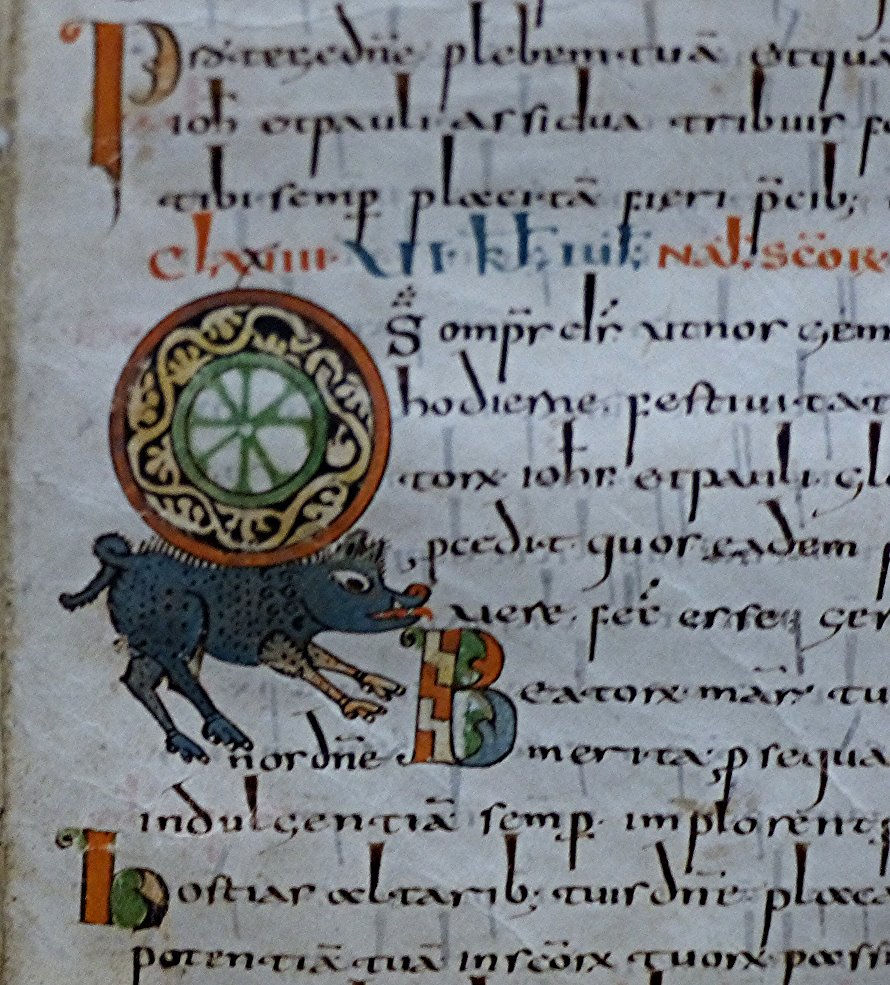 Protege dñe plebem tuā et quā
ioħ et pauli assidua tribuis
tibi semp placitā fieri p̄cib;
CLXVIIII VI KL IUL NAT SCŌR
Qs omps ds ut nos gem
hodierne festiuitat
torū ioħis et pauli gl
pcedit quos eadem
uere fec̄ esse ger
Beatorū mār tu
nos dñe merita p sequa
indulgentiā semp implorent
Hostias altarib; tuis dñe placa
potentiā tuā in scōrū tuorū passi